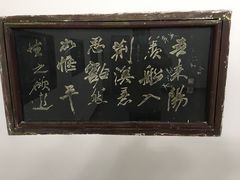 吾来陽
羨船入
荆溪意
思豁然
如惬平
生之欲